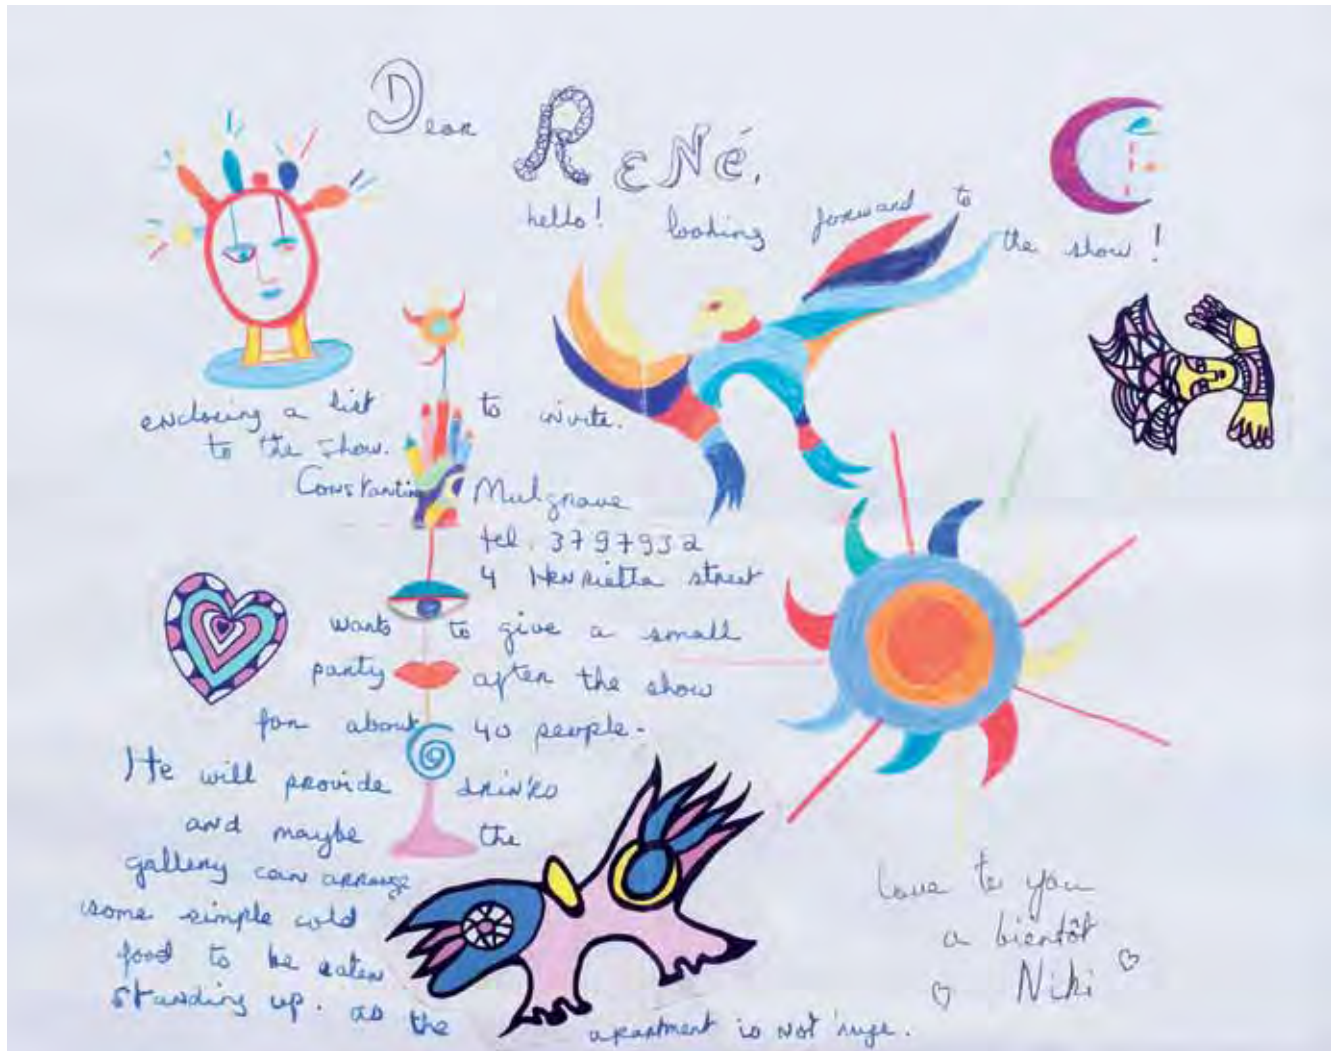 Dear RENÉ,
hello! looking forward to the show!
enclosing a list to invite.
to the show.
Constantine Mulgrave
tel. 3797932
4 Henrietta street
wants to give a small
party after the show
for about 40 people.
He will provide drinks
and maybe the
gallery can arrange
some simple cold
food to be eaten
standing up. as the apartment is not huge.
love to you
a bientôt
Niki